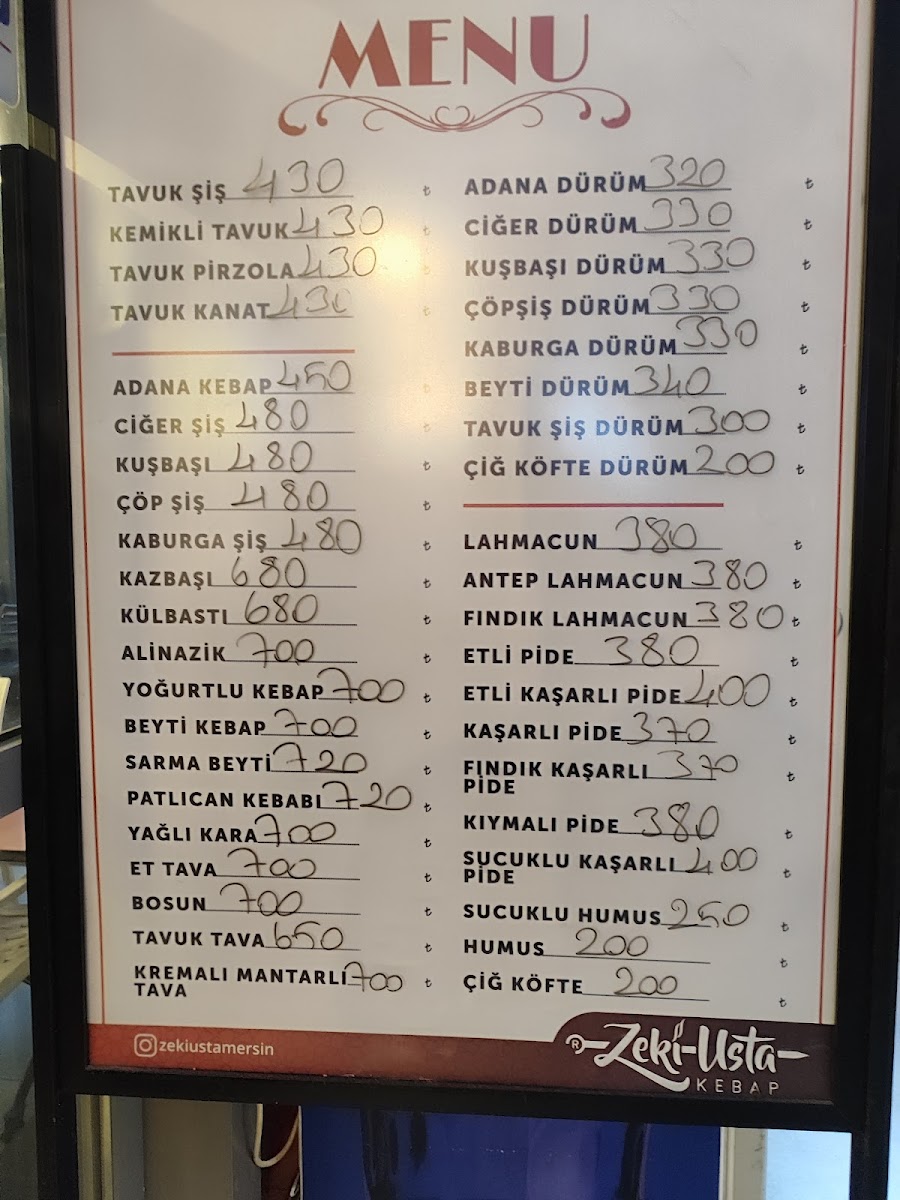 MENU
TAVUK ŞİŞ 430 ₺
KEMİKLİ TAVUK 430 ₺
TAVUK PİRZOLA 430 ₺
TAVUK KANAT 430 ₺
ADANA KEBAP 450 ₺
CİĞER ŞİŞ 480 ₺
KUŞBAŞI 480 ₺
ÇÖP ŞİŞ 480 ₺
KABURGA ŞİŞ 480 ₺
KAZBAŞI 680 ₺
KÜLBASTI 680 ₺
ALİNAZİK 700 ₺
YOĞURTLU KEBAP 700 ₺
BEYTİ KEBAP 700 ₺
SARMA BEYTİ 720 ₺
PATLICAN KEBABI 720 ₺
YAĞLI KARA 700 ₺
ET TAVA 700 ₺
BOSUN 700 ₺
TAVUK TAVA 650 ₺
KREMALI MANTARLI 700 ₺
TAVA
ADANA DÜRÜM 320 ₺
CİĞER DÜRÜM 330 ₺
KUŞBAŞI DÜRÜM 330 ₺
ÇÖPŞİŞ DÜRÜM 330 ₺
KABURGA DÜRÜM 330 ₺
BEYTİ DÜRÜM 340 ₺
TAVUK ŞİŞ DÜRÜM 300 ₺
ÇİĞ KÖFTE DÜRÜM 200 ₺
LAHMACUN 380 ₺
ANTEP LAHMACUN 380 ₺
FINDIK LAHMACUN 380 ₺
ETLİ PİDE 380 ₺
ETLİ KAŞARLI PİDE 400 ₺
KAŞARLI PİDE 370 ₺
FINDIK KAŞARLI 370 ₺
PİDE
KIYMALI PİDE 380 ₺
SUCUKLU KAŞARLI 400 ₺
PİDE
SUCUKLU HUMUS 250 ₺
HUMUS 200 ₺
ÇİĞ KÖFTE 200 ₺
zekiustamersin
® Zeki Usta
KEBAP